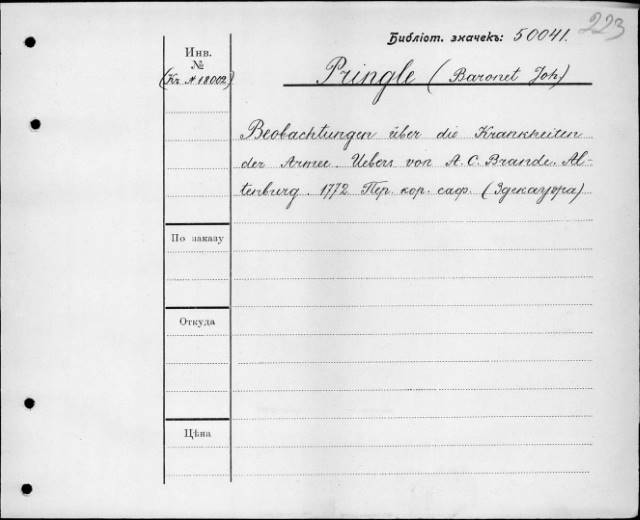 223
Библіот. значекъ: 50041.
Инв.
№
(Кг № 18002)
Pringle (Baronet Joh.)
Beobachtungen über die Krankheiten
der Armee. Uebers von A. C. Brande. Al-
tenburg. 1772 Пер. кор. саф. (Здекауера)
По заказу
Откуда
Цѣна